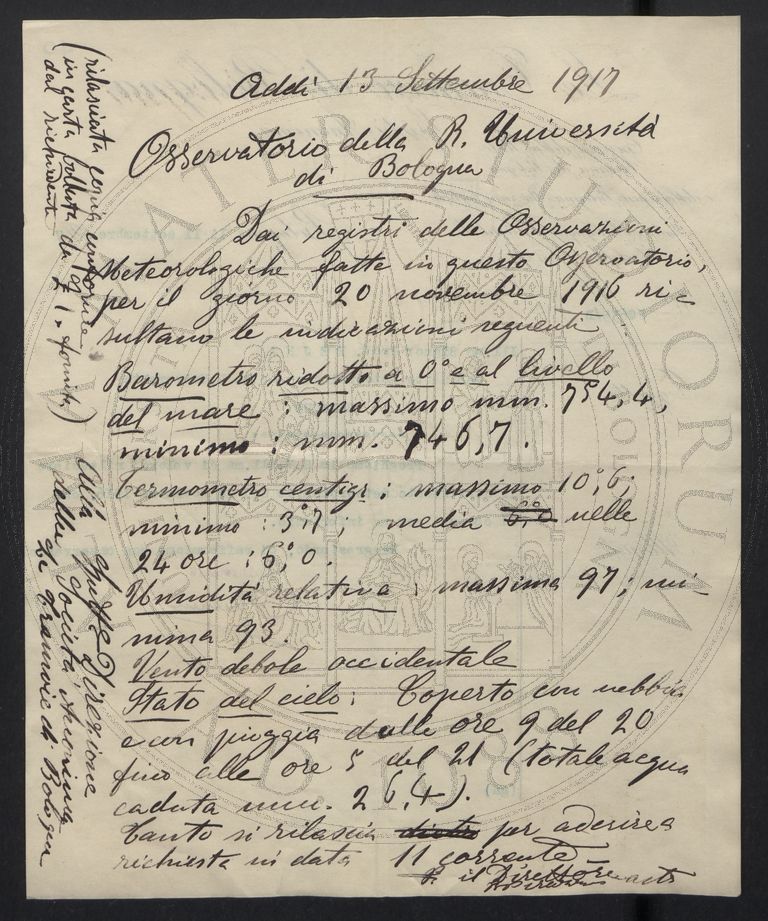 Addì 13 Settembre 1917
Osservatorio della R. Università
di Bologna
Dai registri delle Osservazioni
Meteorologiche fatte in questo Osservatorio,
per il giorno 20 novembre 1916 ri-
sultano le indicazioni seguenti
Barometro ridotto a 0° e al livello
del mare : massimo mm. 754,4,
minimo : mm. 746,7.
Termometro centigr : massimo 10°,6;
minimo : 3°,7; media 6°,0 nelle
24 ore : 6°,0.
Umidità relativa : massima 97; mi-
nima 93.
Vento debole occidentale
Stato del cielo : Coperto con nebbia
e con pioggia dalle ore 9 del 20
fino alle ore 5 del 21 (totale acqua
caduta mm. 26,4).
Tanto si rilascia dietro per aderire a
richiesta in data 11 corrente
p. il Direttore
(rilasciata copia conforme
in carta bollata da £ 1, fornita)
dal richiedente
Alla Direzione
della Società Anonima
de Tramvie di Bologna
ALMA MATER STUDIORUM